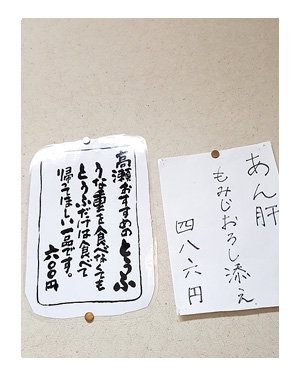 高瀬おすすめのとうふ
うな重を食べなくても
とうふだけは食べて
帰てほしい一品です。
六〇〇円
あん肝
もみじおろし添え
四八六円